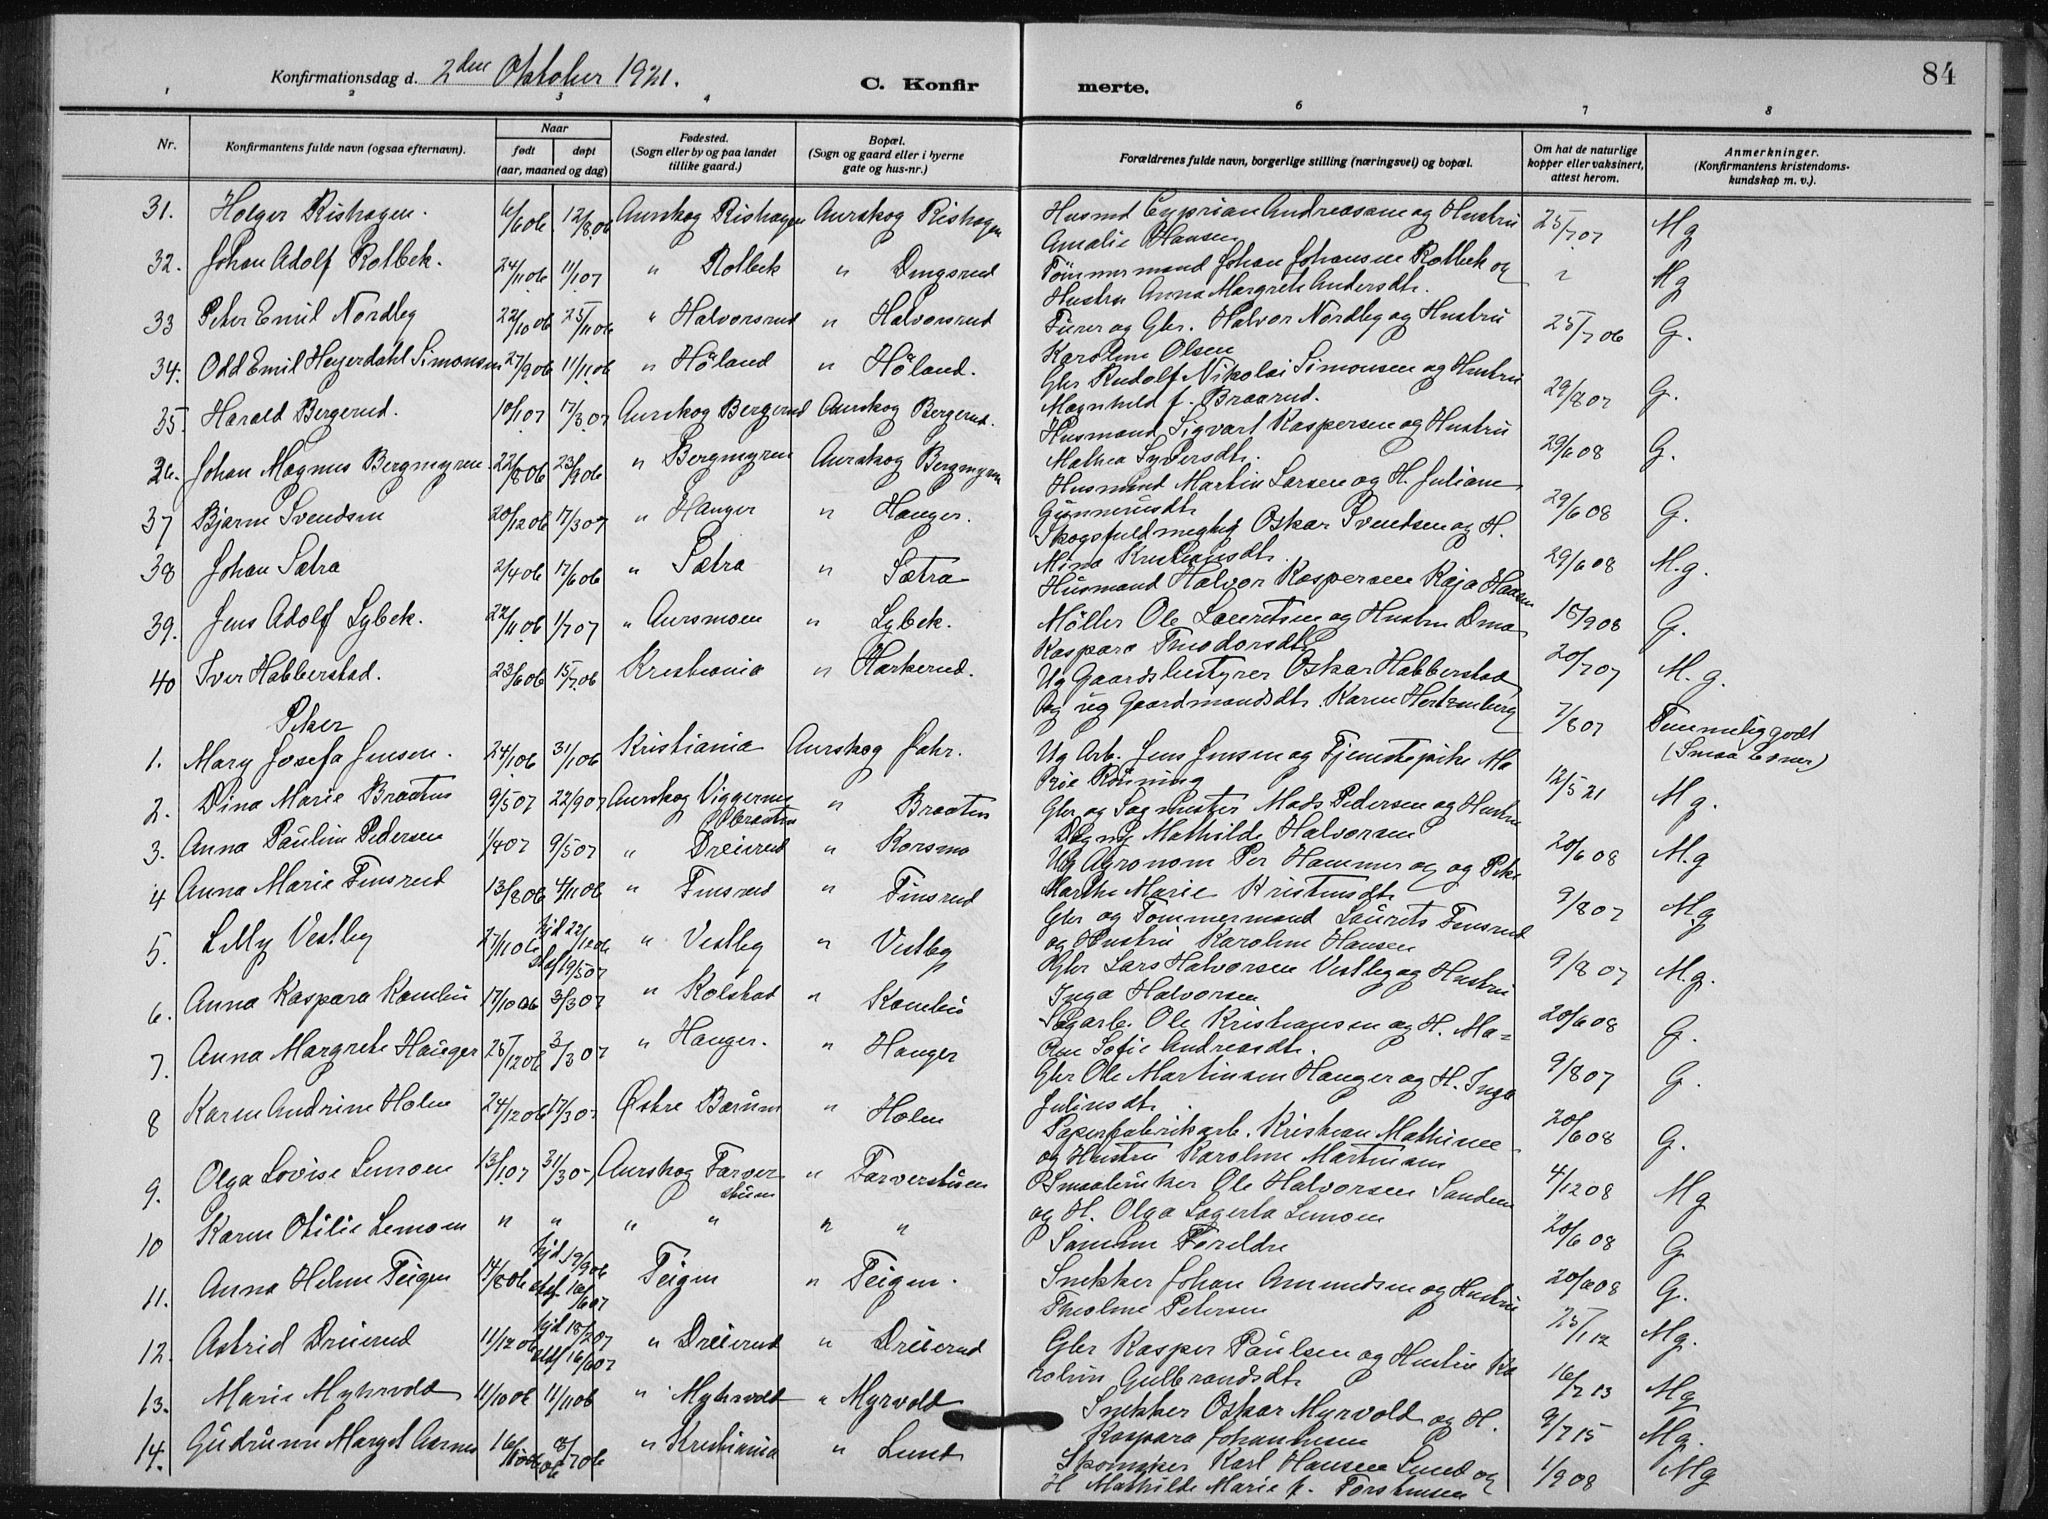 84
Konfirmationsdag d. 2den Oktober 1921. C. Konfirmerte.
1 2 3 4 6 7 8
Nr.
Konfirmantens fulde navn (ogsaa efternavn).
Naar
født døpt
(aar, maaned og dag)
Fødested.
(Sogn eller by og paa landet
tillike gaard.)
Bopæl.
(Sogn og gaard eller i byerne
gate og hus-nr.)
Forældrenes fulde navn, borgerlige stilling (næringsvei) og bopæl.
Om hat de naturlige
kopper eller vaksinert,
attest herom.
Anmerkninger.
(Konfirmantens kristendoms-
kundskap m. v.).
31. Holger Rishagen. 6/6 06 12/8 06 Aurskog Rishagen Aurskog Rishagen Husmd Cyprian Andreassen og Hustru Amalie Hansen 25/7 07 Mg
32. Johan Adolf Rolbek. 24/11 06 1/1 07 " Rolbek " Dingsrud Tömmermand Johan Johansen Rolbek og Hustru Anna Margrete Andersdt. " Mg
33 Peter Emil Nordby 22/10 06 25/11 06 " Halvorsrud " Halvorsrud Furer og Gbr. Halvor Nordby og Hustru Karoline Olsen 25/7 06 G.
34. Odd Emil Heyerdahl Simonsen 27/9 06 11/11 06 " Höland " Höland. Gbr Rudolf Nikolai Simonsen og Hustru Magnhild f. Braarud. 29/8 07 G.
35. Harald Bergerud. 10/1 07 17/3 07 Aurskog Bergerud Aurskog Bergerud. Husmand Sigvart Kaspersen og Hustru Mathea Syversdt. 29/6 08 G.
36. Johan Magnus Bergmyren 22/8 06 23/9 06 " Bergmyren Aurskog Bergmyren Husmand Martin Larsen og H. Juliane Gunneriusdt. 29/6 08 G.
37 Bjarne Svendsen 20/12 06 17/3 07 " Hauger " Hauger. Skogsfuldmegtig Oskar Svendsen og H. Mina Kristiansdt. 29/6 08 M.g.
38 Johan Sætra 2/4 06 17/6 06 " Sætra " Sætra Husmand Halvor Kaspersen Kaja Hansen
39. Jens Adolf Lybek. 22/11 06 1/7 07 " Aursmoen " Lybek. Möller Ole Lauritsen og Hustru Dina Kaspara Theodorsdt. 15/9 08 G.
40 Iver Habberstad. 23/6 06 15/7 06 Kristiania " Harkerud. Ug Gaardsbestyrer Oskar Habberstad og ug Gaardmandsdt. Karen Hertzenberg 20/7 07 M.g.
Piker
1. Mary Josefa Jensen. 24/1 06 31/1 06 Kristiania Aurskog Fahr. Ug Arb. Jens Jensen og Tjenestepike Ma 7/8 07 Temmelig godt (Smaa Evner)
2. Dina Marie Braaten 9/5 07 22/9 07 Aurskog Viggernes braaten " Braaten Gbr og Sagmester Mads Pedersen og Hustru Dagny Mathilde Halvorsen 12/5 21 Mg.
3. Anna Pauline Pedersen 1/4 07 9/5 07 " Dreierud " Korsmo Ug Agronom Per Hammer og ug Pike Marthe Marie Kristensdt. 20/6 08 M.g
4 Anna Marie Finsrud 13/8 06 4/11 06 " Finsrud " Finsrud Gbr og Tömmermand Laurits Finsrud og Hustru Karoline Hansen 9/8 07 Mg
5. Lilly Vestby 27/11 06 hjd 22/12 06 stdf 19/5 07 " Vestby " Vestby Gbr Lars Halvorsen Vestby og Hustru Inga Halvorsen 9/8 07 M.g.
6. Anna Kaspara Kambú 17/10 06 3/3 07 " Kolstad " Kambú Sagarb. Ole Kristiansen og H. Ma- ren Sofie Andreasdt. 20/6 08 G.
7. Anna Margrete Hauger 25/12 06 3/3 07 " Hauger. " Hauger Gbr Ole Martinsen Hauger og H. Inga Juliusdt. 9/8 07 G.
8 Karen Andrine Holen 24/12 06 17/3 07 Østre Bærum " Holen Papirfabrikarb. Kristian Mathisen og Hustru Karoline Martinsen 20/6 08 G.
9. Olga Lovise Lemoen 13/1 07 31/3 07 Aurskog Farverstuen " Farverstuen Smaabruker Ole Halvorsen Sanden og H. Olga Lagerta Lemoen 4/12 08 Mg
10 Karen Otilie Lemoen " " " " " " Samme Foreldre 20/6 08 G
11. Anna Helene Teigen 14/8 06 hjd 19/9 06 stdf 10/6 07 Teigen " Teigen. Snekker Johan Amundsen og Hustru Theoline Petersen 20/6 08 G.
12. Astrid Dreierud 11/12 06 hjd 18/2 07 stdf 16/6 07 " Dreierud " Dreierud Gbr Kasper Paulsen og Hustru Ka roline Gulbrandsdt. 25/1 12 Mg.
13. Marie Myhrvold 1/10 06 11/11 06 " Myhrvold " Myrvold Snekker Oskar Myrvold og H. Kaspara Johannesen 16/7 13 Mg
14. Gudrunn Margot Aarnes 16/1 06 8/7 06 " Kristiania " Lund Skomaker Karl Hansen Lund og H Mathilde Marie f. Torstensen 9/7 15 Mg.
1/9 08 Mg